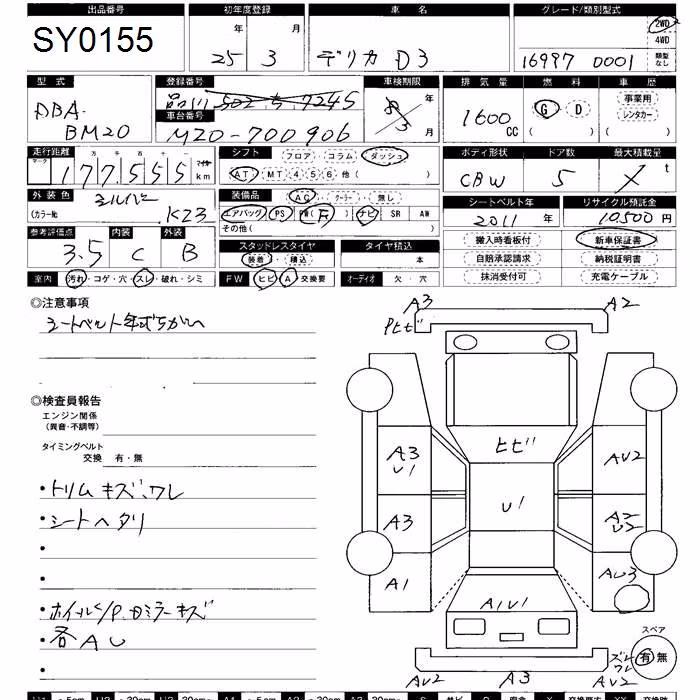 出品番号 初年度登録 車名 グレード/類別型式
SY0155 25年 3月 デリカ D3 16997 0001 2WD 4WD 類型なし
型式 登録番号 車検期限 排気量 燃料 車歴
DBA-BM20 品川 502 ち 7245 年 月 1600 CC G D ( ) 事業用 レンタカー ( )
車台番号
M20-700906
走行距離 シフト フロア・コラム・ダッシュ ボディ形状 ドア数 最大積載量
マーク 十万 万 千 百 十 一 マイナー
177,555 km AT・MT 4 5 6 他( ) CBW 5 t
外装色 シルバー 装備品 AC・クーラー・無し シートベルト年 リサイクル預託金
(カラーNo. KZ3 エアバッグ PS PW( ) ナビ SR AW 2011年 10500円
その他( )
参考評価点 内装 外装 スタッドレスタイヤ タイヤ積込 搬入時看板付 新車保証書
3.5 C B 装着・積込 本 自賠承認請求 納税証明書
室内 汚れ・コゲ・穴・スレ・破れ・シミ FW ヒビ・A・交換要 オーディオ 欠・穴 抹消受付可 充電ケーブル
◎注意事項
シートベルト年式ちがい
◎検査員報告
エンジン関係
(異音・不調等)
タイミングベルト
交換 有・無
・トリム キズ、ワレ
・シートヘタリ
・
・
・ホイルC/P. Dミラーキズ
・各AU
・
A3 A2
Pヒビ
ヒビ
A3 U1 AU2
U1
A3 A2 U2
A1 AU3
A1U1
スペア
有 無
AU2 A3 AU2 ズレ ワレ